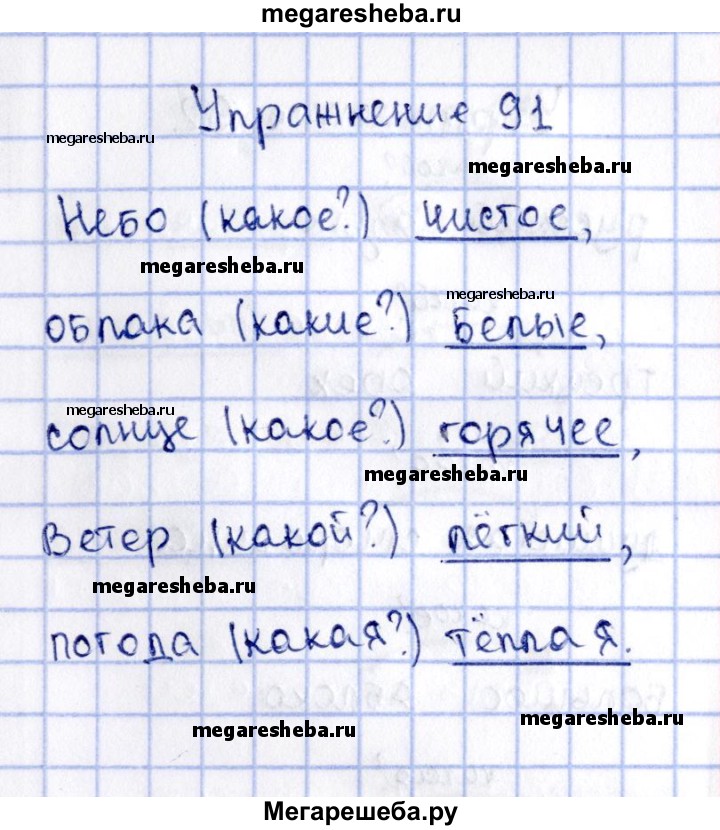 megaresheba.ru
Упражнение 91
megaresheba.ru
megaresheba.ru
Небо (какое?) чистое,
megaresheba.ru
megaresheba.ru
облака (какие?) белые,
megaresheba.ru
солнце (какое?) горячее,
megaresheba.ru
Ветер (какой?) лёгкий,
megaresheba.ru
погода (какая?) тёплая.
megaresheba.ru
megaresheba.ru
Мегарешеба.ру